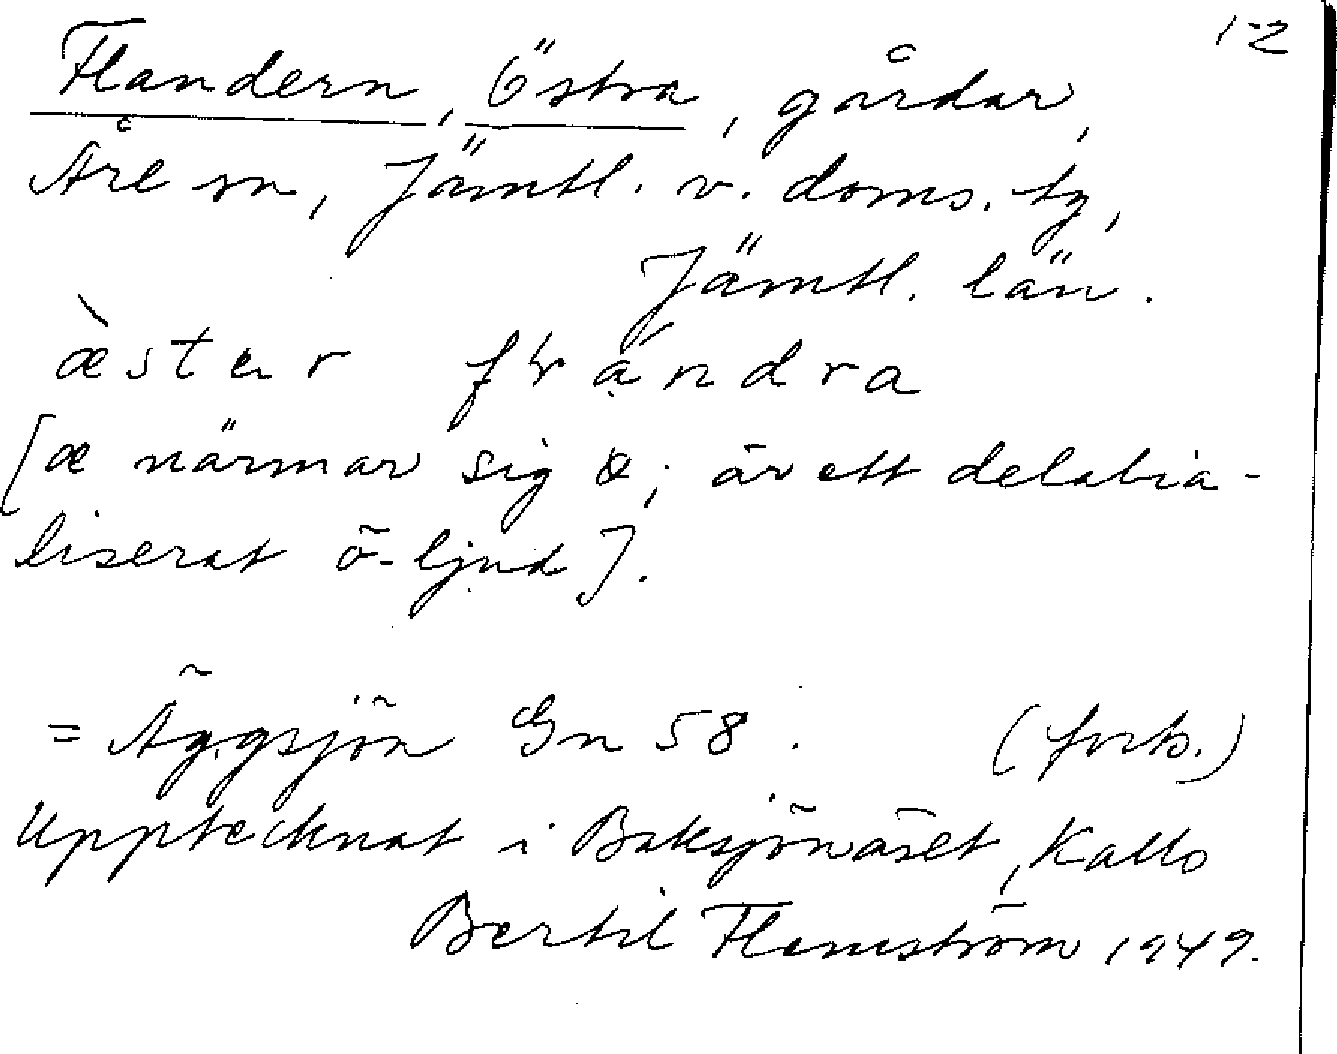 1-2
Flandern, Östra, gårdar,
Åre sn, Jämtl. v. doms. tg,
Jämtl. län.
æ̀ster frándra
[æ närmar sig ; är ett delabia-
liserat ö-ljud].
= Äggsjön Gn 58. (forts.)
Upptecknat i Baksjönäset, Kalls
Bertil Flemström 1949.